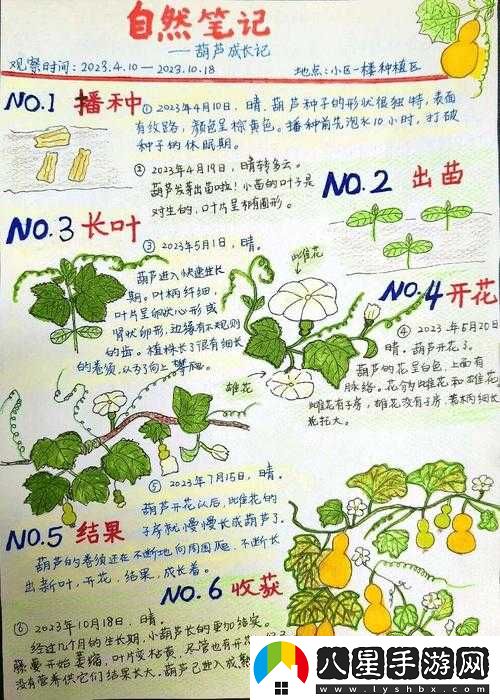 自然笔记
——葫芦成长记
观察时间：2023.4.10—2023.10.18
地点：小区一楼种植区
NO.1 播种
① 2023年4月10日，晴。葫芦种子的形状很独特，表面
有纹路，颜色呈棕黄色。播种前先泡水10小时，打破
种子的休眠期。
② 2023年4月19日，晴转多云。
葫芦发芽出苗啦！小苗的叶子是
对生的，叶片呈卵圆形。
NO.2 出苗
NO.3 长叶
③ 2023年5月1日，晴。
葫芦进入快速生长
期。叶柄纤细，
叶片呈卵状心形或
肾状卵形，边缘有不规则
的齿。植株长了很有细长
的卷须，从方向上攀爬。
雌花
雄花
NO.4 开花
④ 2023年5月20日
晴。葫芦开花了。
葫芦的花呈白色，上面有
脉络。花分雌花和雄花，
雌花有子房，雄花没有子房，花柄细长
光托大。
⑤ 2023年7月15日，晴。
葫芦开花以后，雌花的
子房就慢慢长成葫芦了。
NO.5 结果
葫芦的卷须还在不断地向周围爬，不断长
出新叶，开花，结果，成长着。
NO.6 收获
⑥ 2023年10月18日，晴。
经过几个月的生长期，小葫芦长的更加结实。
藤蔓开始萎缩，叶片变枯黄。尽管也有开花
没营养供它们结果长大。葫芦已进入成熟
八星手游网
www.lyshbx.com